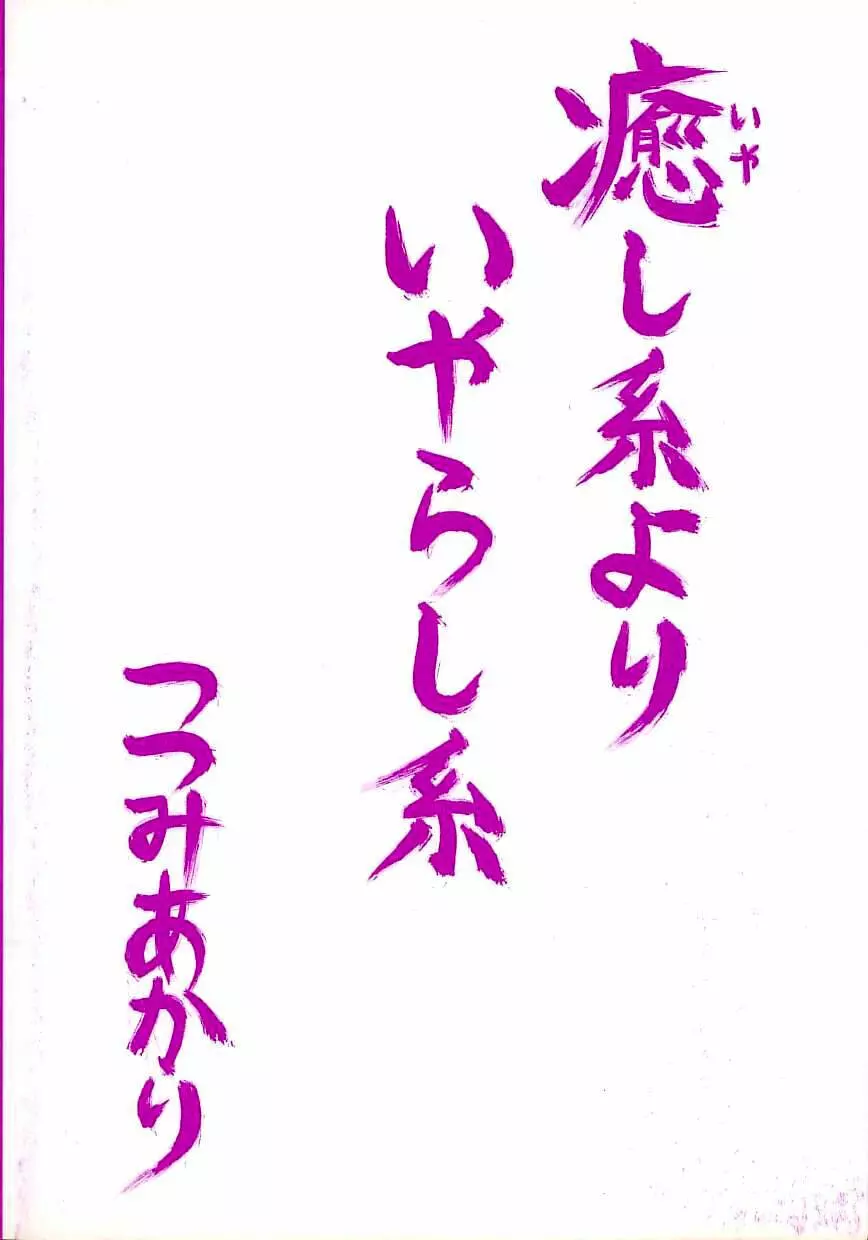 癒し系より
いや
いやらし系
つつみあかり